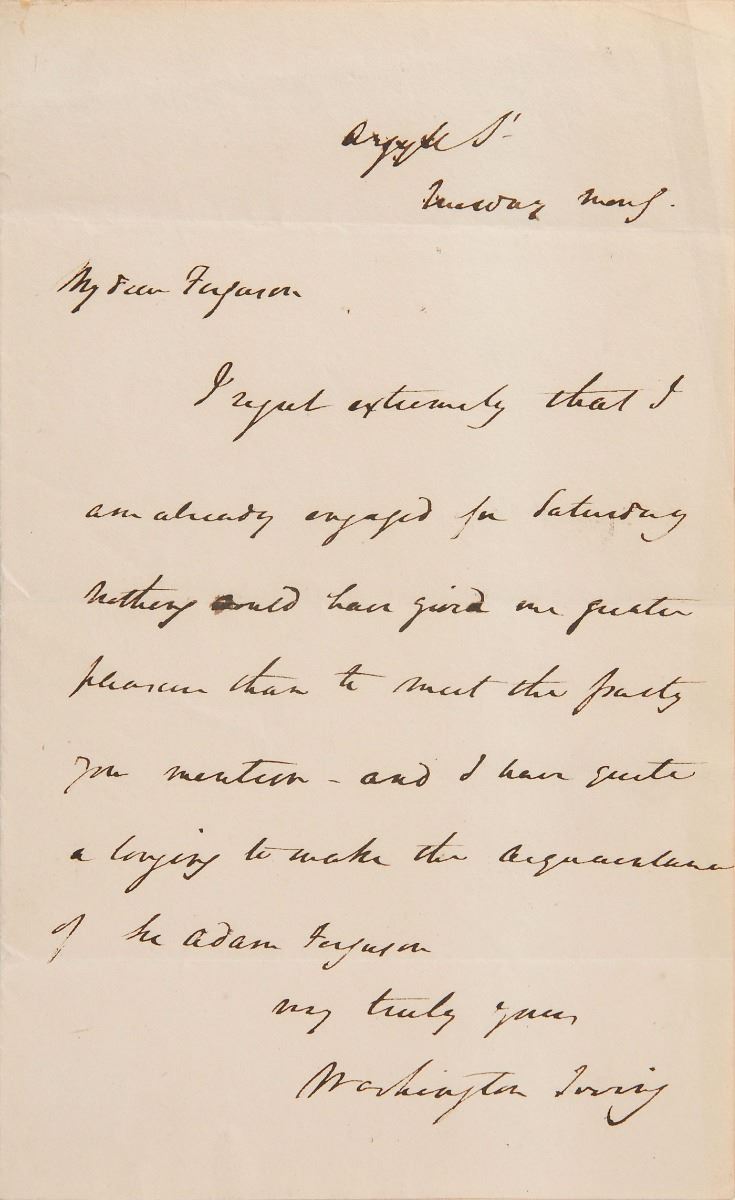 Argyle St
Tuesday Morng.
My dear Ferguson
I regret extremely that I
am already engaged for Saturday
Nothing could have givied me greater
pleasure than to meet the party
you mention - and I have quite
a longing to make the acquaintance
of Sir Adam Ferguson
very truly yours
Washington Irving